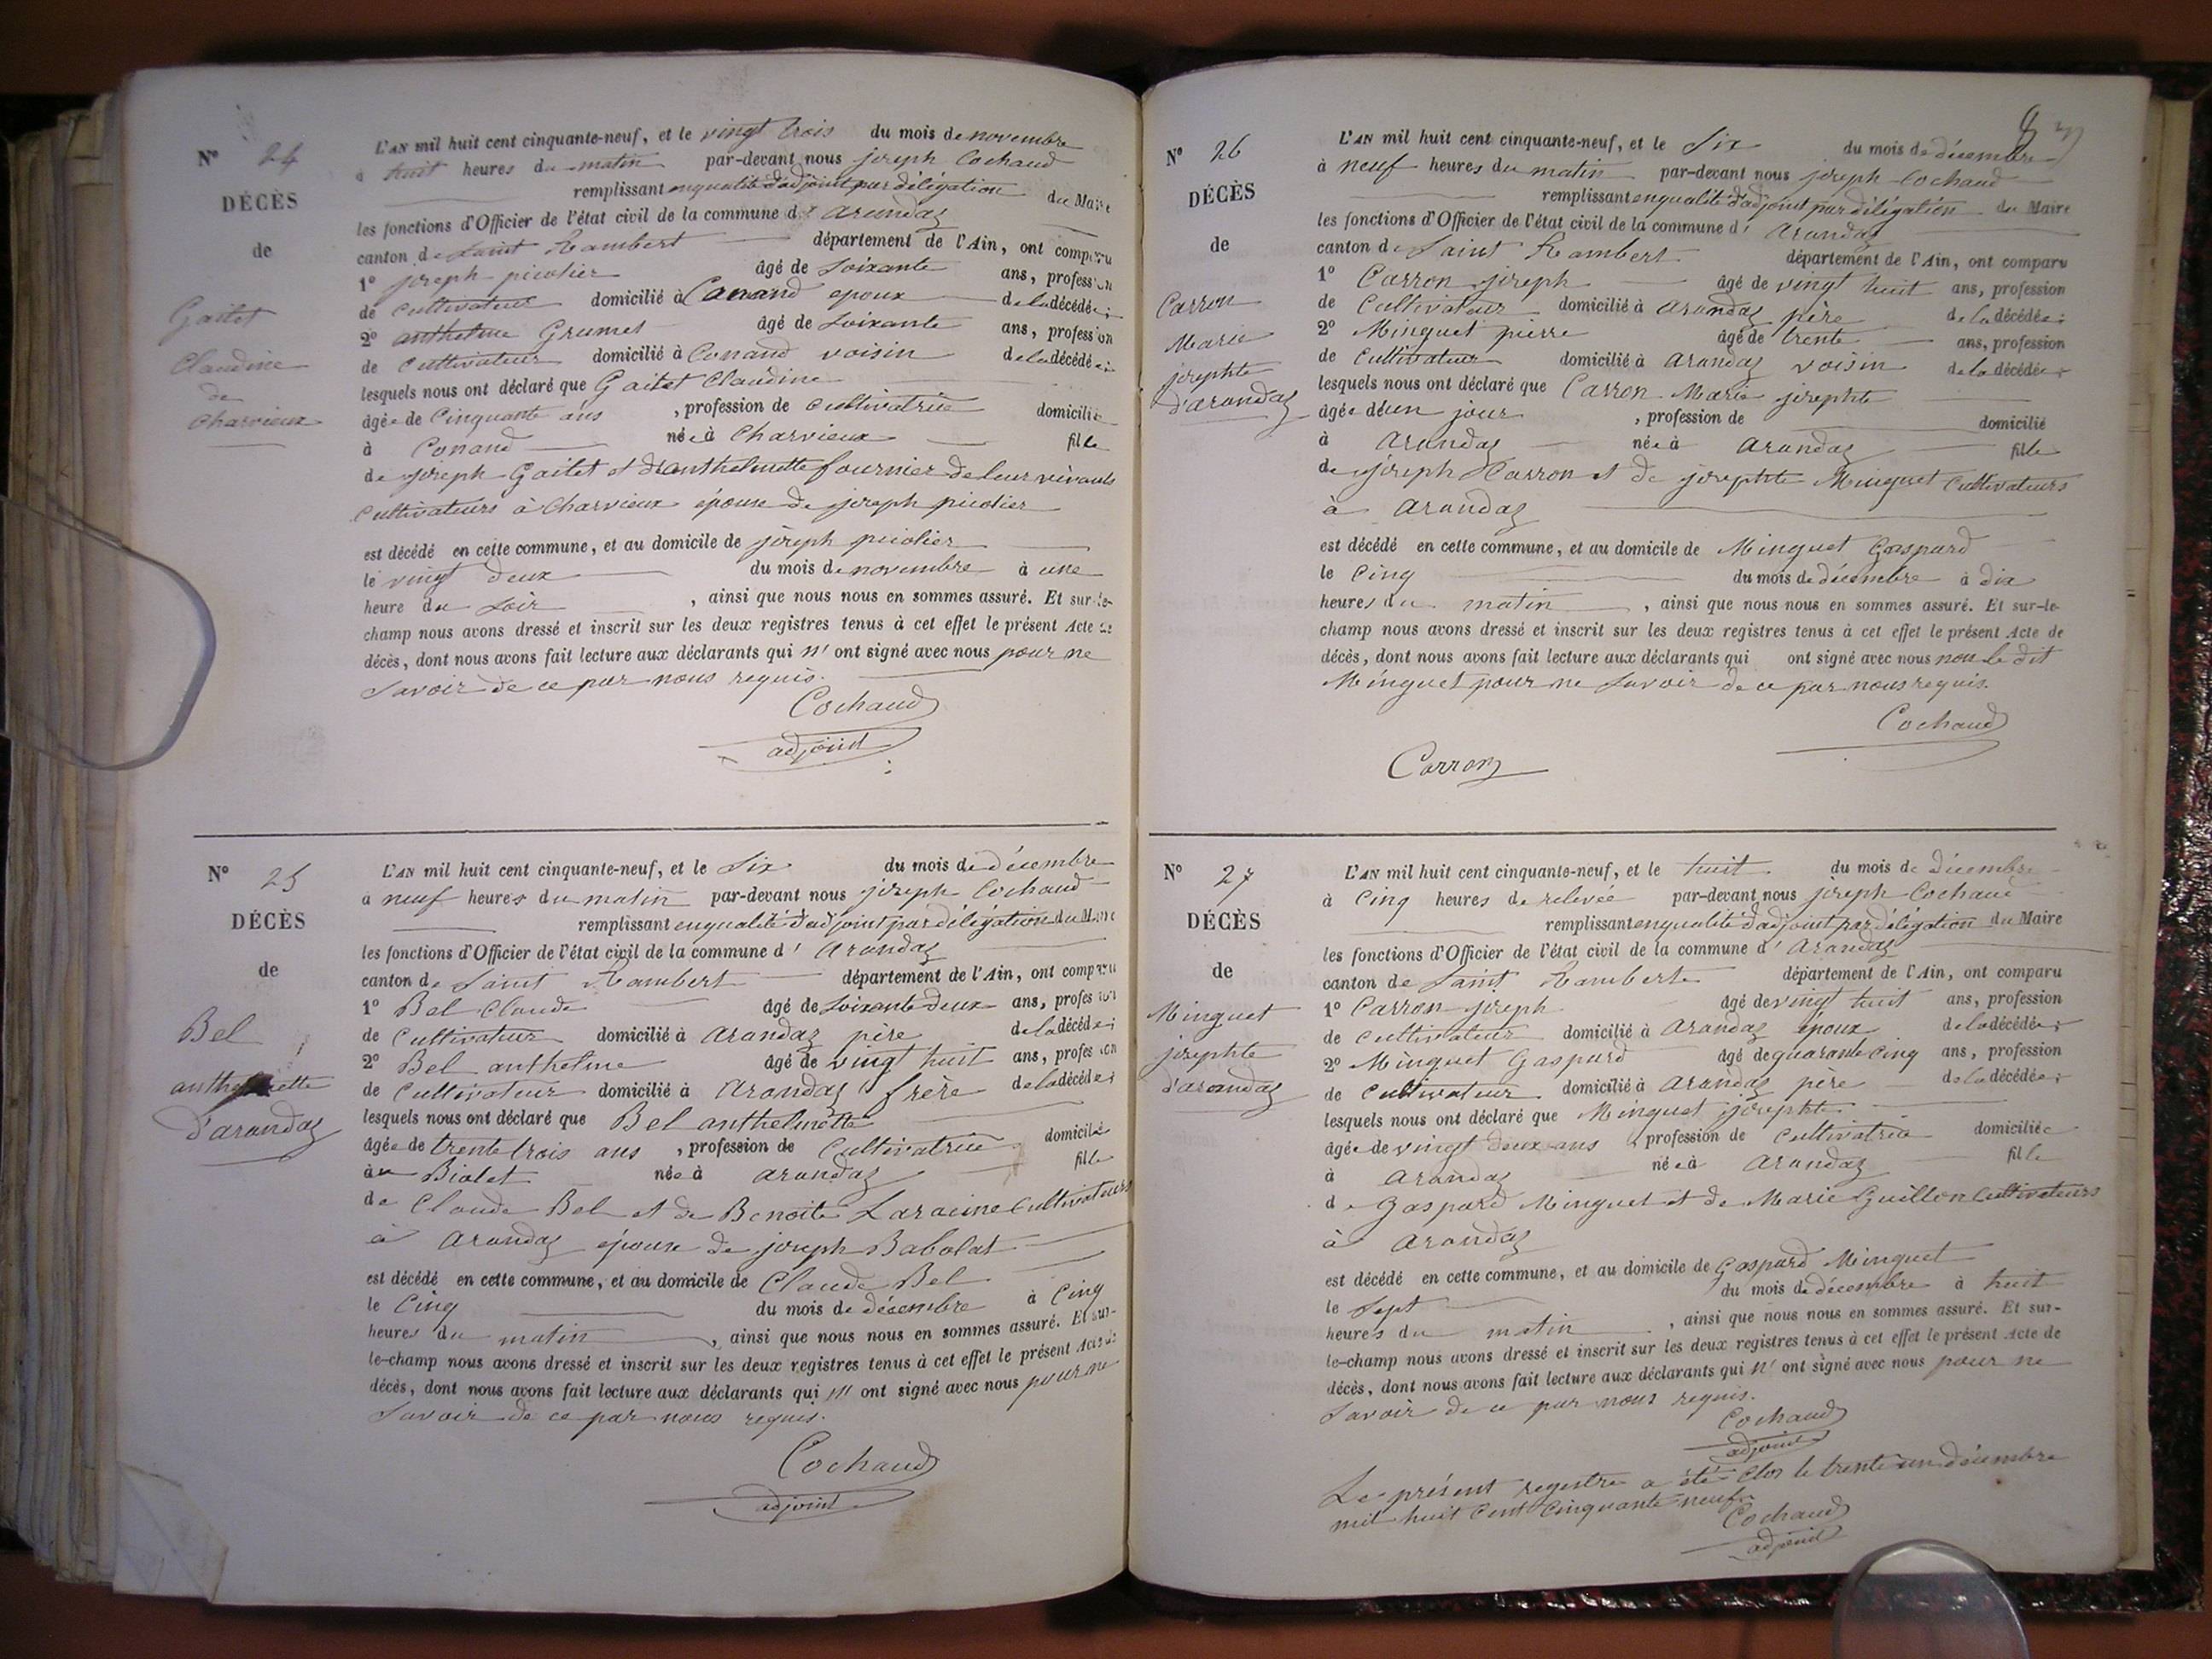 N° 24
DÉCÈS
de
Gaitet
Claudine
de
Charvieux
L'AN mil huit cent cinquante-neuf, et le vingt trois du mois de novembre
à huit heures du matin par-devant nous joseph Cochaud
remplissant en qualité d'adjoint par délégation du Maire
les fonctions d'Officier de l'état civil de la commune d' arandaz
canton de Saint Rambert département de l'Ain, ont comparu
1° joseph picolier âgé de Soixante ans, profession
de Cultivateur domicilié à Conand epoux de la décédée;
2° anthelme Grumet âgé de Soixante ans, profession
de Cultivateur domicilié à Conand voisin de la décédée;
lesquels nous ont déclaré que Gaitet Claudine
âgée de Cinquante ans, profession de Cultivatrice domicilié
à Conand née à Charvieux fille
de joseph Gaitet et d'anthelmette fournier de leur vivants
Cultivateurs à Charvieux épouse de joseph picolier
est décédé en cette commune, et au domicile de joseph picolier
le vingt deux du mois de novembre à une
heure du Soir, ainsi que nous nous en sommes assuré. Et sur-le-
champ nous avons dressé et inscrit sur les deux registres tenus à cet effet le présent Acte de
décès, dont nous avons fait lecture aux déclarants qui n' ont signé avec nous pour ne
Savoir de ce par nous requis.
Cochaud
adjoint
N° 25
DÉCÈS
de
Bel
anthelmette
d'arandaz
L'AN mil huit cent cinquante-neuf, et le Six du mois de décembre
à neuf heures du matin par-devant nous joseph Cochaud
remplissant en qualité d'adjoint par délégation du Maire
les fonctions d'Officier de l'état civil de la commune d' Arandaz
canton de Saint Rambert département de l'Ain, ont comparu
1° Bel Claude âgé de Soixante deux ans, profession
de Cultivateur domicilié à Arandaz père de la décédée;
2° Bel anthelme âgé de vingt huit ans, profession
de Cultivateur domicilié à Arandaz frère de la décédée;
lesquels nous ont déclaré que Bel anthelmette
âgée de trente trois ans, profession de Cultivatrice domicilié
à Biolet née à arandaz fille
de Claude Bel et de Benoite Laracine Cultivateurs
à Arandaz épouse de joseph Babolat
est décédé en cette commune, et au domicile de Claude Bel
le Cinq du mois de décembre à Cinq
heures du matin, ainsi que nous nous en sommes assuré. Et sur-
le-champ nous avons dressé et inscrit sur les deux registres tenus à cet effet le présent Acte de
décès, dont nous avons fait lecture aux déclarants qui n' ont signé avec nous pour ne
Savoir de ce par nous requis.
Cochaud
adjoint
8
N° 26
DÉCÈS
de
Carron
Marie
josephte
d'arandaz
L'AN mil huit cent cinquante-neuf, et le Six du mois de décembre
à neuf heures du matin par-devant nous joseph Cochaud
remplissant en qualité d'adjoint par délégation du Maire
les fonctions d'Officier de l'état civil de la commune d' Arandaz
canton de Saint Rambert département de l'Ain, ont comparu
1° Carron joseph âgé de vingt huit ans, profession
de Cultivateur domicilié à Arandaz père de la décédée;
2° Minguet pierre âgé de trente ans, profession
de Cultivateur domicilié à Arandaz voisin de la décédée;
lesquels nous ont déclaré que Carron Marie josephte
âgée d'un jour, profession de domicilié
à Arandaz née à Arandaz fille
de joseph Carron et de josephte Minguet Cultivateurs
à Arandaz
est décédé en cette commune, et au domicile de Minguet Gaspard
le Cinq du mois de décembre à dix
heures du matin, ainsi que nous nous en sommes assuré. Et sur-le-
champ nous avons dressé et inscrit sur les deux registres tenus à cet effet le présent Acte de
décès, dont nous avons fait lecture aux déclarants qui ont signé avec nous non le dit
Minguet pour ne Savoir de ce par nous requis.
Cochaud
Carron
N° 27
DÉCÈS
de
Minguet
josephte
d'arandaz
L'AN mil huit cent cinquante-neuf, et le huit du mois de Décembre
à Cinq heures de relevée par-devant nous joseph Cochaud
remplissant en qualité d'adjoint par délégation du Maire
les fonctions d'Officier de l'état civil de la commune d' Arandaz
canton de Saint Ramberte département de l'Ain, ont comparu
1° Carron joseph âgé de vingt huit ans, profession
de Cultivateur domicilié à Arandaz époux de la décédée;
2° Minguet Gaspard âgé de quarante Cinq ans, profession
de Cultivateur domicilié à Arandaz père de la décédée;
lesquels nous ont déclaré que Minguet josephte
âgée de vingt deux ans, profession de Cultivatrice domiciliée
à Arandaz née à Arandaz fille
de Gaspard Minguet et de Marie Guillon Cultivateurs
à Arandaz
est décédé en cette commune, et au domicile de Gaspard Minguet
le Sept du mois de décembre à huit
heures du matin, ainsi que nous nous en sommes assuré. Et sur-
le-champ nous avons dressé et inscrit sur les deux registres tenus à cet effet le présent Acte de
décès, dont nous avons fait lecture aux déclarants qui n' ont signé avec nous pour ne
Savoir de ce par nous requis.
Cochaud
adjoint
Le présent registre a été Clos le trente un décembre
mil huit Cent Cinquante neuf
Cochaud
adjoint